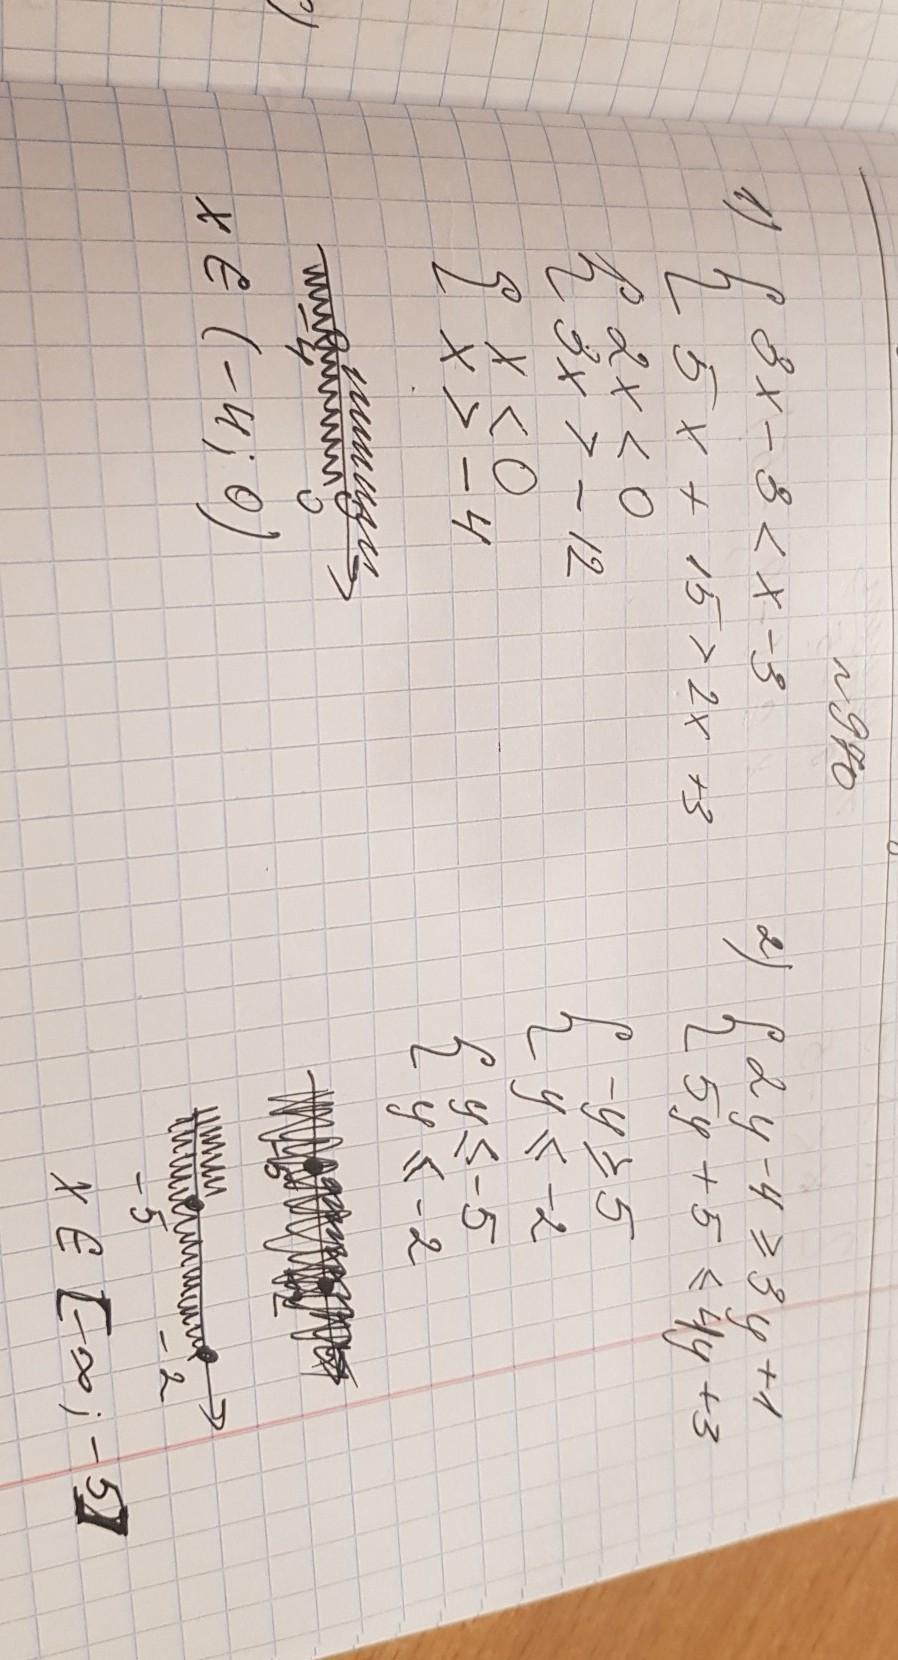 1) { 3x - 3 < x - 3
{ 5x + 15 > 2x + 3
{ 2x < 0
{ 3x > - 12
{ x < 0
{ x > - 4
-4 0
x ∈ (-4; 0)
2) { 2y - 4 ≥ 3y + 1
{ 5y + 5 ≤ 4y + 3
{ -y ≥ 5
{ y ≤ -2
{ y ≤ -5
{ y ≤ -2
-5 -2
x ∈ [-∞; -5]